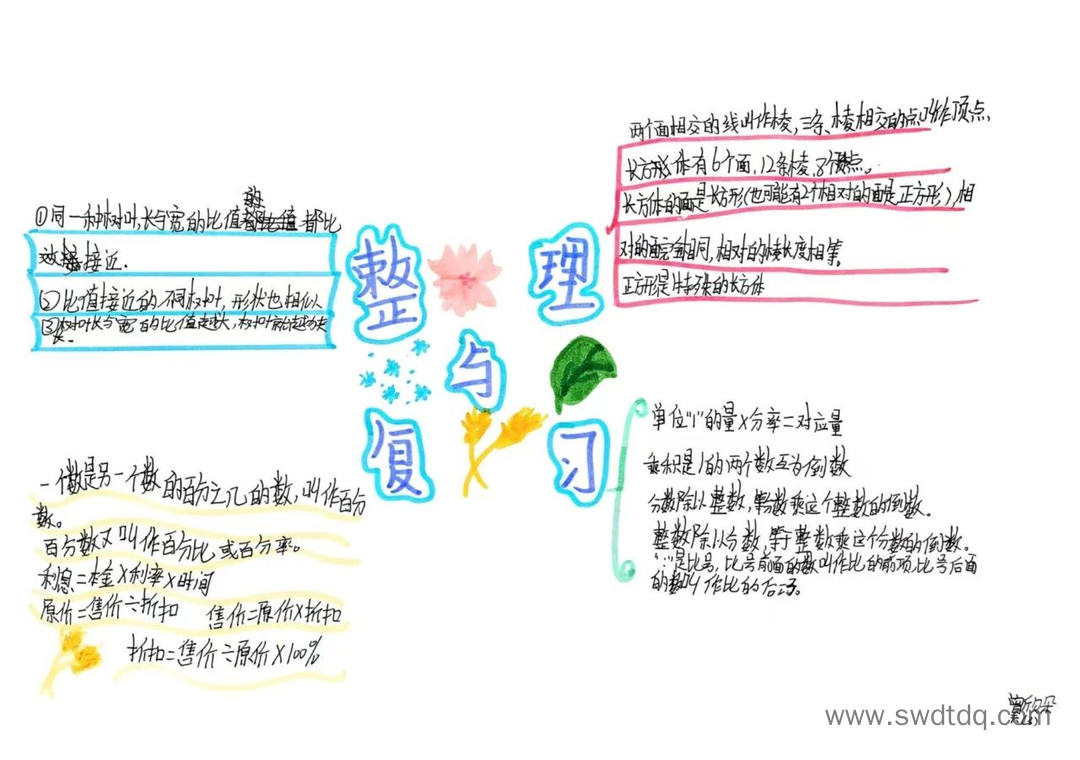 整理
与
复习
①同一种树叶,长与宽的比值都比
较接近.
②比值接近的不同树叶,形状也相似
③树叶长与宽的比值越大,树叶就越狭
长。
两个面相交的线叫作棱,三条棱相交的点叫作顶点,
长方形体有6个面,12条棱,8个顶点。
长方体的面是长方形(也可能有2个相对的面是正方形),相
对的面完全相同,相对的棱长度相等。
正方形是特殊的长方体
一个数是另一个数的百分之几的数,叫作百分
数。
百分数又叫作百分比或百分率。
利息=本金×利率×时间
原价=售价÷折扣 售价=原价×折扣
折扣=售价÷原价×100%
单位“1”的量×分率=对应量
乘积是1的两个数互为倒数
分数除以整数,等分数乘这个整数的倒数。
整数除以分数,等于整数乘这个分数的倒数。
“:”是比号,比号前面的数叫作比的前项,比号后面
的数叫作比的后项。
www.swdtdq.com